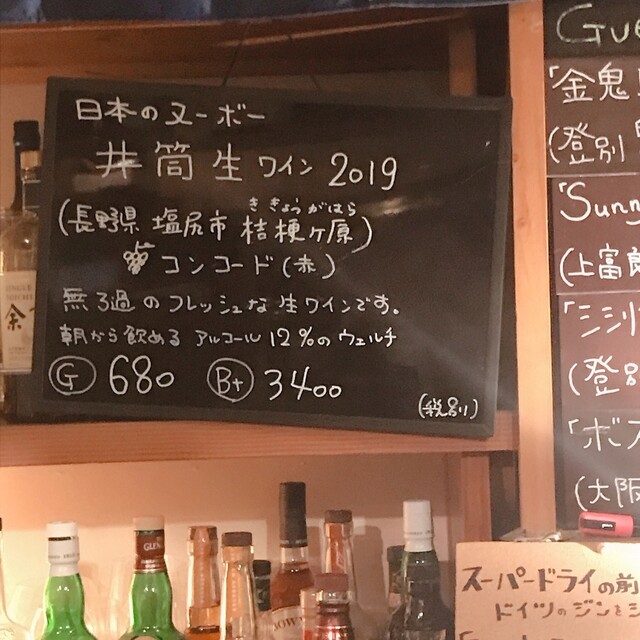 日本のヌーボー
井筒生ワイン 2019
ききょうがはら
(長野県 塩尻市 桔梗ヶ原)
コンコード(赤)
無ろ過のフレッシュな生ワインです。
朝から飲める アルコール 12%のウェルチ
G 680 Bt 3400
(税別)
Gue
「金鬼
(登別
「Sunn
(上富良
(登別
「ボ
(大阪
余
GLEN
スーパードライの前
ドイツのジンと